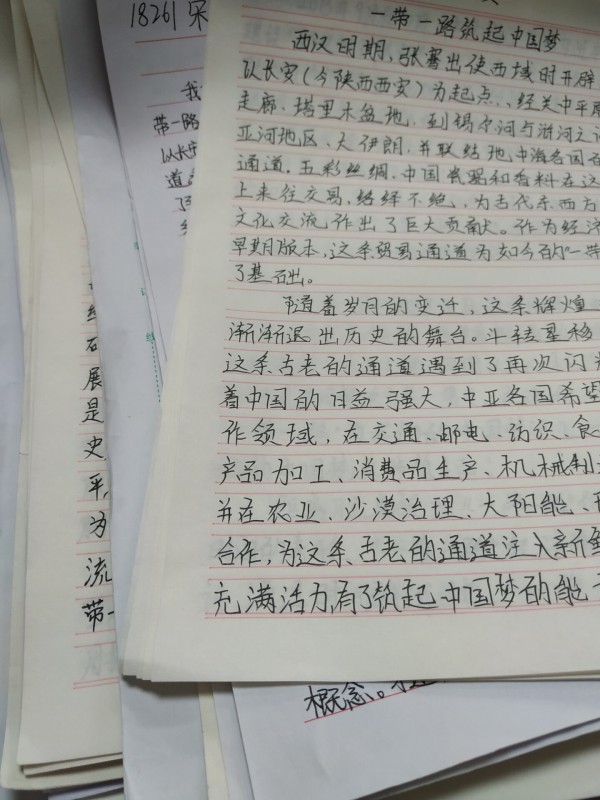 一带一路筑起中国梦
西汉时期，张骞出使西域时开辟
以长安（今陕西西安）为起点、、经关中平原
走廊、塔里木盆地，到锡尔河与
亚河地区、大伊朗，并联结地中海各国
通道，五彩丝绸、中国瓷器和香料在这
上来往交易，络绎不绝，为古代东西方
文化交流作出了巨大贡献。作为经济
早期版本，这条贸易通道为如今的“一带
了基础。
随着岁月的变迁，这条辉煌
渐渐退出历史的舞台。斗转星移
这条古老的通道遇到了再次闪
着中国的日益强大，中亚各国希望
作领域，在交通、邮电、纺织、食
产品加工、消费品生产、机械制
并在农业、沙漠治理、太阳能、
合作，为这条古老的通道注入新鲜
充满活力，有了筑起中国梦的能
18261 宋
我
带一路
以长安
道
了
展
是
史
平，
为
流
带一
概念。